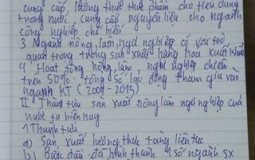 cung cấp lương thực thực phẩm cho tiêu dùng
trong nước, cung cấp nguyên liệu cho ngành
công nghiệp chế biến
3 Ngành nông, lâm, ngư nghiệp có vai trò
quan trọng trong sản xuất hàng hoá xuất khẩu
4 Hoạt động nông, lâm, ngư nghiệp chiếm
trên 50% tổng số lao động tham gia vào
ngành KT (2009 - 2015)
II. Thành tựu sản xuất nông lâm ngư nghiệp của
nước ta hiện nay
1 Thành tựu
a) Sản xuất lương thực tăng liên tục
b) Bước đầu đã hình thành 1 số ngành sx